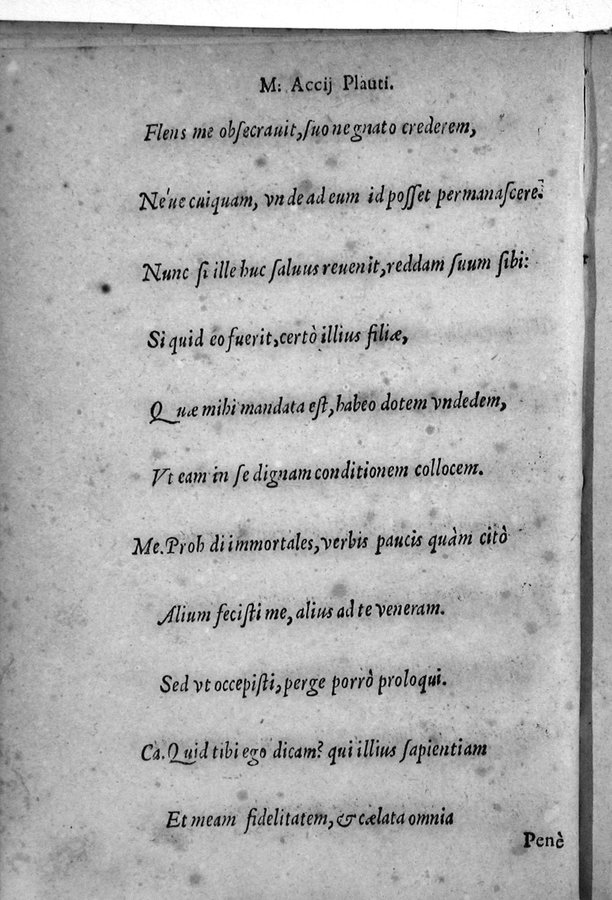 M: Accij Plauti.
Flens me obſecrauit, ſuo ne gnato crederem,
Néue cuiquam, vnde ad eum id poſſet permanaſcere.
Nunc ſi ille huc ſaluus reuenit, reddam ſuum ſibi:
Si quid eo fuerit, certò illius filiæ,
Quæ mihi mandata eſt, habeo dotem vndedem,
Vt eam in ſe dignam conditionem collocem.
Me. Proh di immortales, verbis paucis quàm citò
Alium feciſti me, alius ad te veneram.
Sed vt occepiſti, perge porrò proloqui.
Ca. Quid tibi ego dicam? qui illius ſapientiam
Et meam fidelitatem, & cælata omnia
Penè